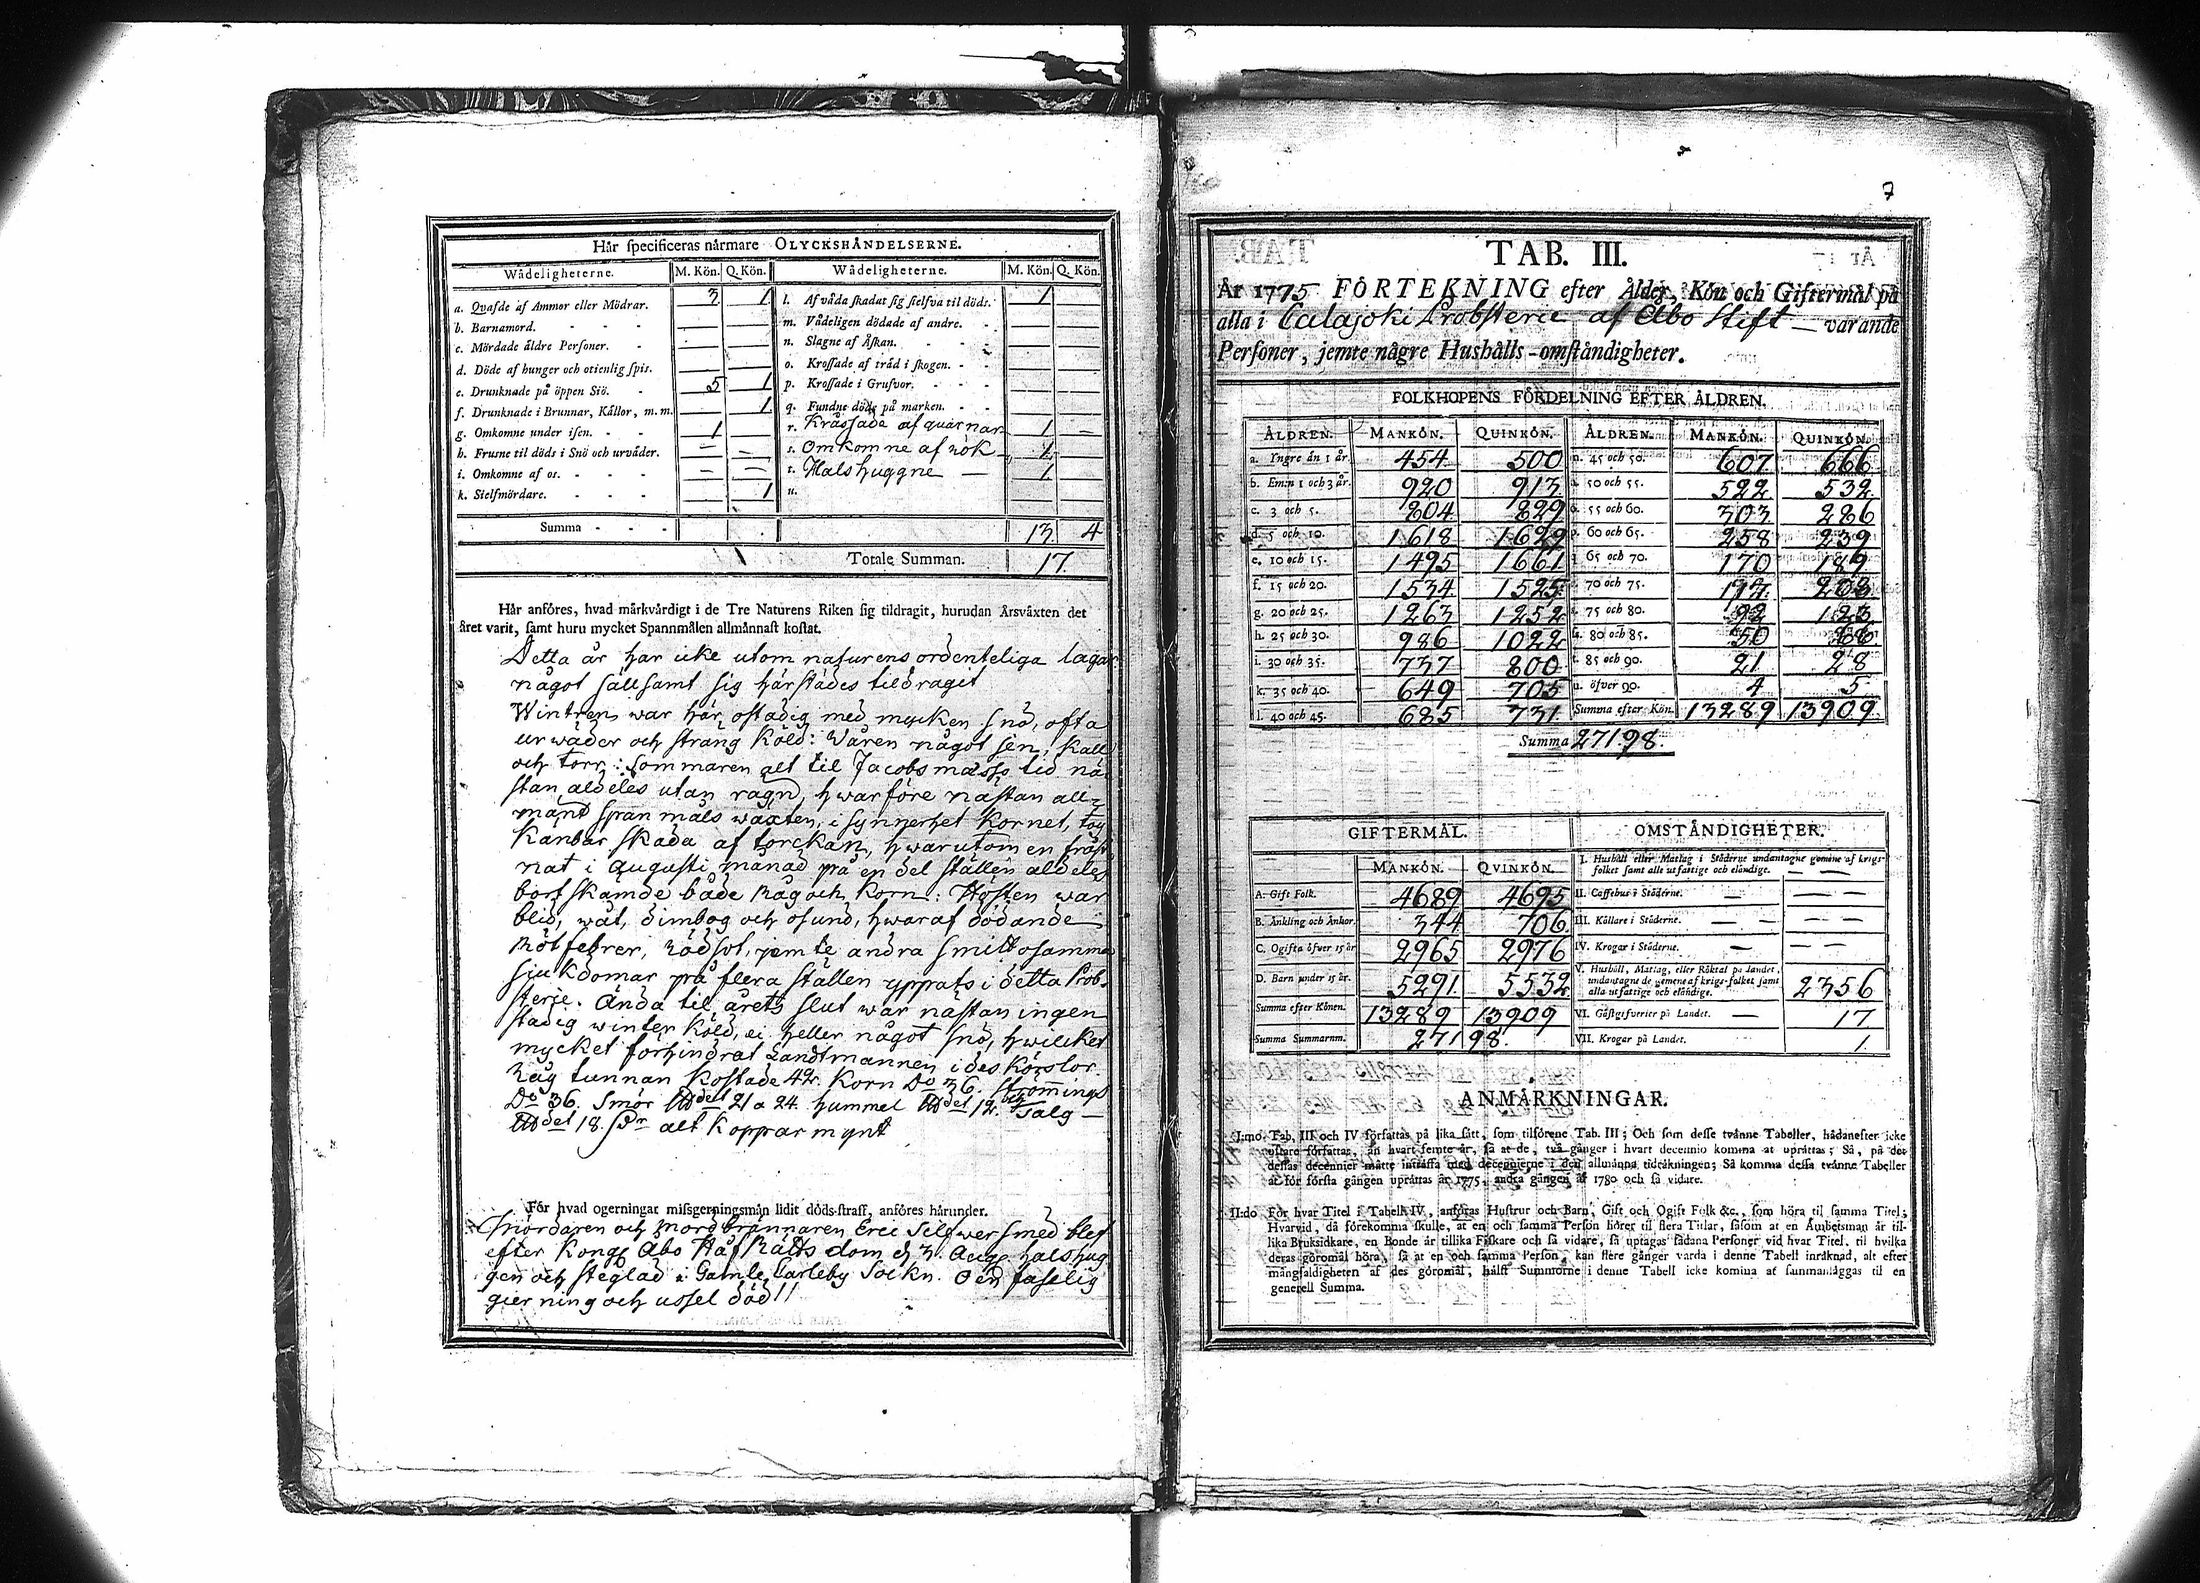 Hår specificeras nårmare OLYCKSHÅNDELSERNE.
Wådeligheterne. M. Kön. Q. Kön. Wådeligheterne. M. Kön. Q. Kön.
a. Qvafde af Ammor eller Mödrar. 3 1 l. Af våda skadat sig sielfva til döds. 1
b. Barnamord. m. Vådeligen dödade af andre.
c. Mördade åldre Personer. n. Slagne af Åskan.
d. Döde af hunger och otienlig spis. o. Krossade af tråd i skogen.
e. Drunknade på öppen Siö. 5 1 p. Krossade i Grufvor.
f. Drunknade i Brunnar, Kållor, m.m. 1 q. Fundne döde på marken.
g. Omkomne under isen. 1 r. Kråssade af quarnar 1 –
h. Frusne til döds i Snö och urvåder. – – s. Omkomne af rök – 1
i. Omkomne af os. – – t. Halshuggne — 1
k. Sielfmördare. 1 u.
Summa - - - 13 4
Totale Summan. 17
Hår anföres, hvad mårkvårdigt i de Tre Naturens Riken sig tildragit, hurudan Årsvåxten det
året varit, samt huru mycket Spannmålen allmånnast kostat.
Detta år har icke utom naturens ordenteliga lagar
något sällsamt sig härstädes tildragit
Wintren war här ostadig med mycken snö, ofta
urwäder och sträng Köld: Våren något sen, Kall
och torr: sommaren alt til Jacobsmässo tid nä
stan aldeles utan rägn, hwarföre nästan all-
mänt spanmåls wäxten, i synnerhet Kornet, tog
Kanbar skada af torckan, hwarutom en fråst
nat i Augusti månad på en del ställen aldeles
bortskämde både Råg och Korn. Hösten war
blid, wåt, dimbog och osund, hwaraf dödande
Rötfebrer, Rödsot, jemte andra smittosamma
sjukdomar på flera ställen yppats i detta Prob-
sterie. Ända til årets slut war nästan ingen
stadig winter Köld, ei heller något snö, hwilcket
mycket förhindrat Landtmannen i des Körslor.
Råg tunnan Kostade 42. Korn Do 36. Strömmings
Do 36. Smör det 21 a 24. hummel det 12. och Talg –
det 18. Dr alt Kopparmynt
För hvad ogerningar missgerningsmån lidit döds-straff, anföres hårunder.
Mördaren och mordbrännaren Eric Silfwersmed blef
efter Kongl Åbo Håf Rätts dom d 3. Aug. halshug
gen och steglad i Gamle Carleby Sockn. O en faselig
gierning och ussel död!!
7
TAB. III.
År 1775 FÖRTEKNING efter Ålder, Kön och Giftermål på
alla i Calajoki Probsterie af Åbo Stift — varande
Personer, jemte någre Hushålls-omståndigheter.
FOLKHOPENS FÖRDELNING EFTER ÅLDREN.
ÅLDREN. MANKÖN. QUINKÖN. ÅLDREN. MANKÖN. QUINKÖN.
a. Yngre än 1 år. 454 500 m. 45 och 50. 607 666
b. Em:n 1 och 3 år. 920 913 n. 50 och 55. 522 532
c. 3 och 5. 804 829 o. 55 och 60. 303 286
d. 5 och 10. 1618 1629 p. 60 och 65. 258 239
e. 10 och 15. 1495 1661 q. 65 och 70. 170 189
f. 15 och 20. 1534 1525 r. 70 och 75. 203
g. 20 och 25. 1263 1252 s. 75 och 80. 92 123
h. 25 och 30. 986 1022 80 och 85. 50
i. 30 och 35. 737 800 t. 85 och 90. 21 28
k. 35 och 40. 649 705 u. öfver 90. 4 5
l. 40 och 45. 685 731 Summa efter Kön. 13289 13909
Summa 27198.
GIFTERMÅL. OMSTÅNDIGHETER.
MANKÖN. QVINKÖN. I. Hushåll eller Matlag i Ståderne undantagne gemene af krigs-
folket samt alle utfattige och elåndige. — —
A. Gift Folk. 4689 4695 II. Caffehus i Ståderne. — — —
B. Ånkling och Ånkor. 344 706 III. Kållare i Ståderne. — — —
C. Ogifta öfver 15 år 2965 2976 IV. Krogar i Ståderne. — — —
D. Barn under 15 år. 5291 5532 V. Hushåll, Matlag, eller Röktal på landet,
undantagne de gemene af krigs-folket samt
alla utfattige och elåndige. 2356
Summa efter Könen. 13289 13909 VI. Gåstgifverier på Landet. — 17
Summa Summarum. 27198. VII. Krogar på Landet. 1
ANMÅRKNINGAR.
I:mo. Tab. III och IV författas på lika sått, som tilförene Tab. III; Och som desse tvånne Tabeller, hådanefter icke
oftare författas, ån hvart femte år, så at de, två gånger i hvart decennio komma at upråttas; Så, på det
dessas decennier måtte intråffa med decennierne i den allmånna tidråkningen; Så komma dessa tvånne Tabeller
at för första gången upråttas år 1775, andra gången år 1780 och så vidare.
II:do För hvar Titel i Tabell IV, anföras Hustrur och Barn, Gift och Ogift Folk &c., som höra til samma Titel;
Hvarvid, då förekomma skulle, at en och samma Person hörer til flera Titlar, såsom at en Åmbetsman år til-
lika Bruksidkare, en Bonde år tillika Fiskare och så vidare, så uptages sådana Personer vid hvar Titel, til hvilka
deras göromål höra, så at en och samma Person, kan flere gånger varda i denne Tabell inråknad, alt efter
mångfaldigheten af des göromål, hålst Summorne i denne Tabell icke komma at summanlåggas til en
generell Summa.